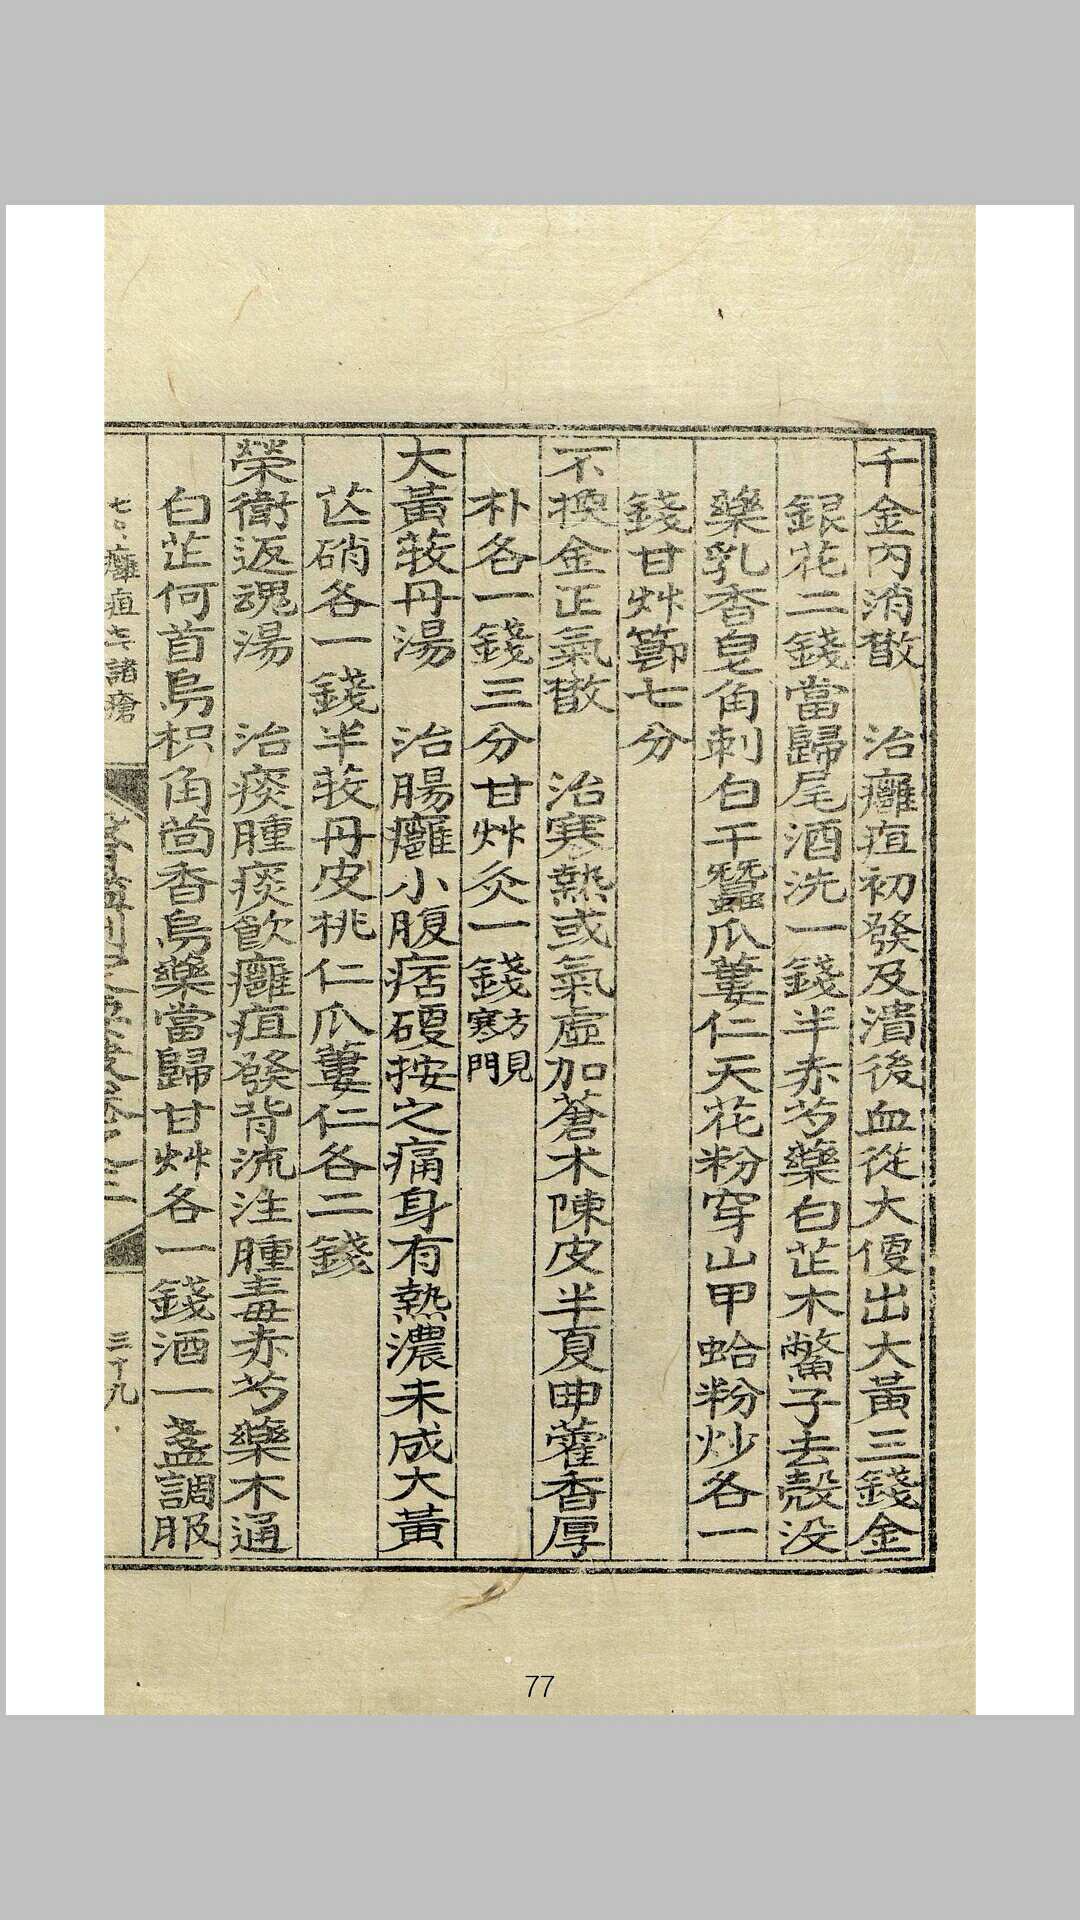 千金內消散 治癰疽初發及潰後血從大便出大黃三錢金
銀花二錢當歸尾酒洗一錢半赤芍藥白芷木鱉子去殼沒
藥乳香皂角刺白干蠶瓜蔞仁天花粉穿山甲蛤粉炒各一
錢甘艸節七分
不換金正氣散 治寒熱或氣虛加蒼朮陳皮半夏曲藿香厚
朴各一錢三分甘艸灸一錢方見寒門
大黃牧丹湯 治腸癰小腹痞硬按之痛身有熱濃未成大黃
芒硝各一錢半牧丹皮桃仁瓜蔞仁各二錢
榮衛返魂湯 治痰腫痰飮癰疽發背流注腫毒赤芍藥木通
白芷何首烏枳角茴香烏藥當歸甘艸各一錢酒一盞調服
癰疽 諸瘡
三十九
77